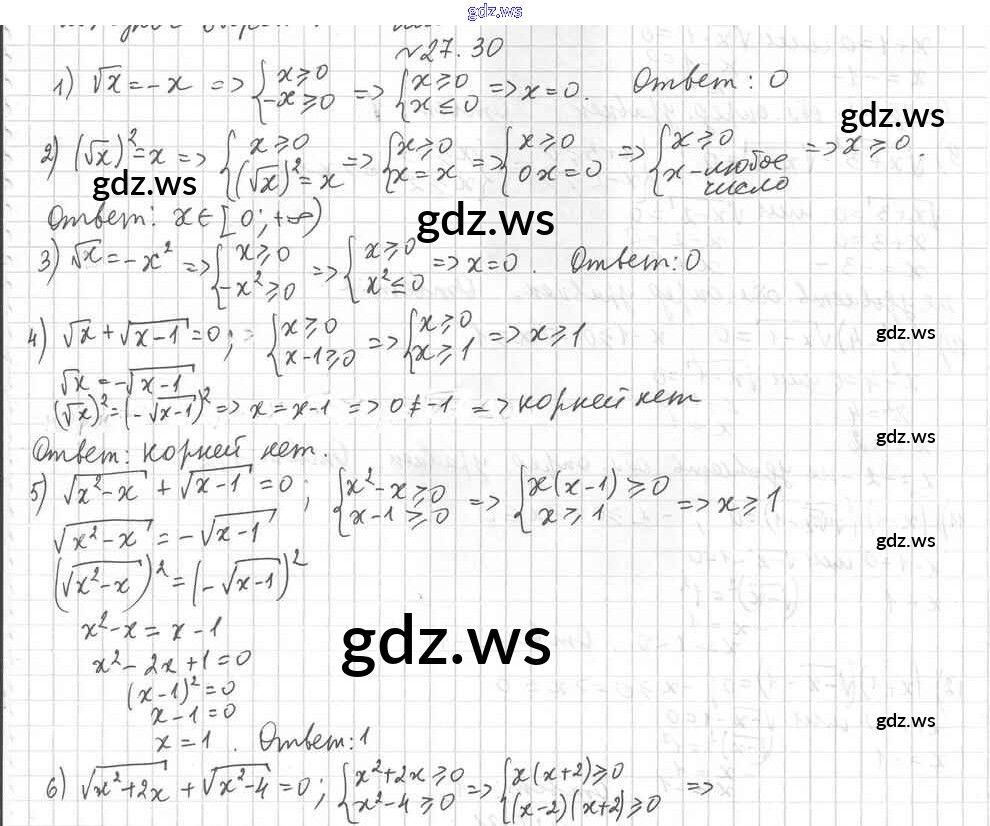 gdz.ws
№27.30
1) √x = -x => {x ≥ 0; -x ≥ 0 => {x ≥ 0; x ≤ 0 => x = 0. Ответ: 0
gdz.ws
2) (√x)² = x => {x ≥ 0; (√x)² = x => {x ≥ 0; x = x => {x ≥ 0; 0x = 0 => {x ≥ 0; x - любое число => x ≥ 0.
gdz.ws
Ответ: x ∈ [0; +∞)
gdz.ws
3) √x = -x² => {x ≥ 0; -x² ≥ 0 => {x ≥ 0; x² ≤ 0 => x = 0. Ответ: 0
4) √x + √(x-1) = 0; {x ≥ 0; x-1 ≥ 0 => {x ≥ 0; x ≥ 1 => x ≥ 1
gdz.ws
√x = -√(x-1)
(√x)² = (-√(x-1))² => x = x-1 => 0 ≠ -1 => корней нет
gdz.ws
Ответ: корней нет.
5) √(x²-x) + √(x-1) = 0; {x²-x ≥ 0; x-1 ≥ 0 => {x(x-1) ≥ 0; x ≥ 1 => x ≥ 1
√(x²-x) = -√(x-1)
gdz.ws
(√(x²-x))² = (-√(x-1))²
x²-x = x-1
gdz.ws
x²-2x+1 = 0
(x-1)² = 0
x-1 = 0
gdz.ws
x = 1. Ответ: 1
6) √(x²+2x) + √(x²-4) = 0; {x²+2x ≥ 0; x²-4 ≥ 0 => {x(x+2) ≥ 0; (x-2)(x+2) ≥ 0 =>